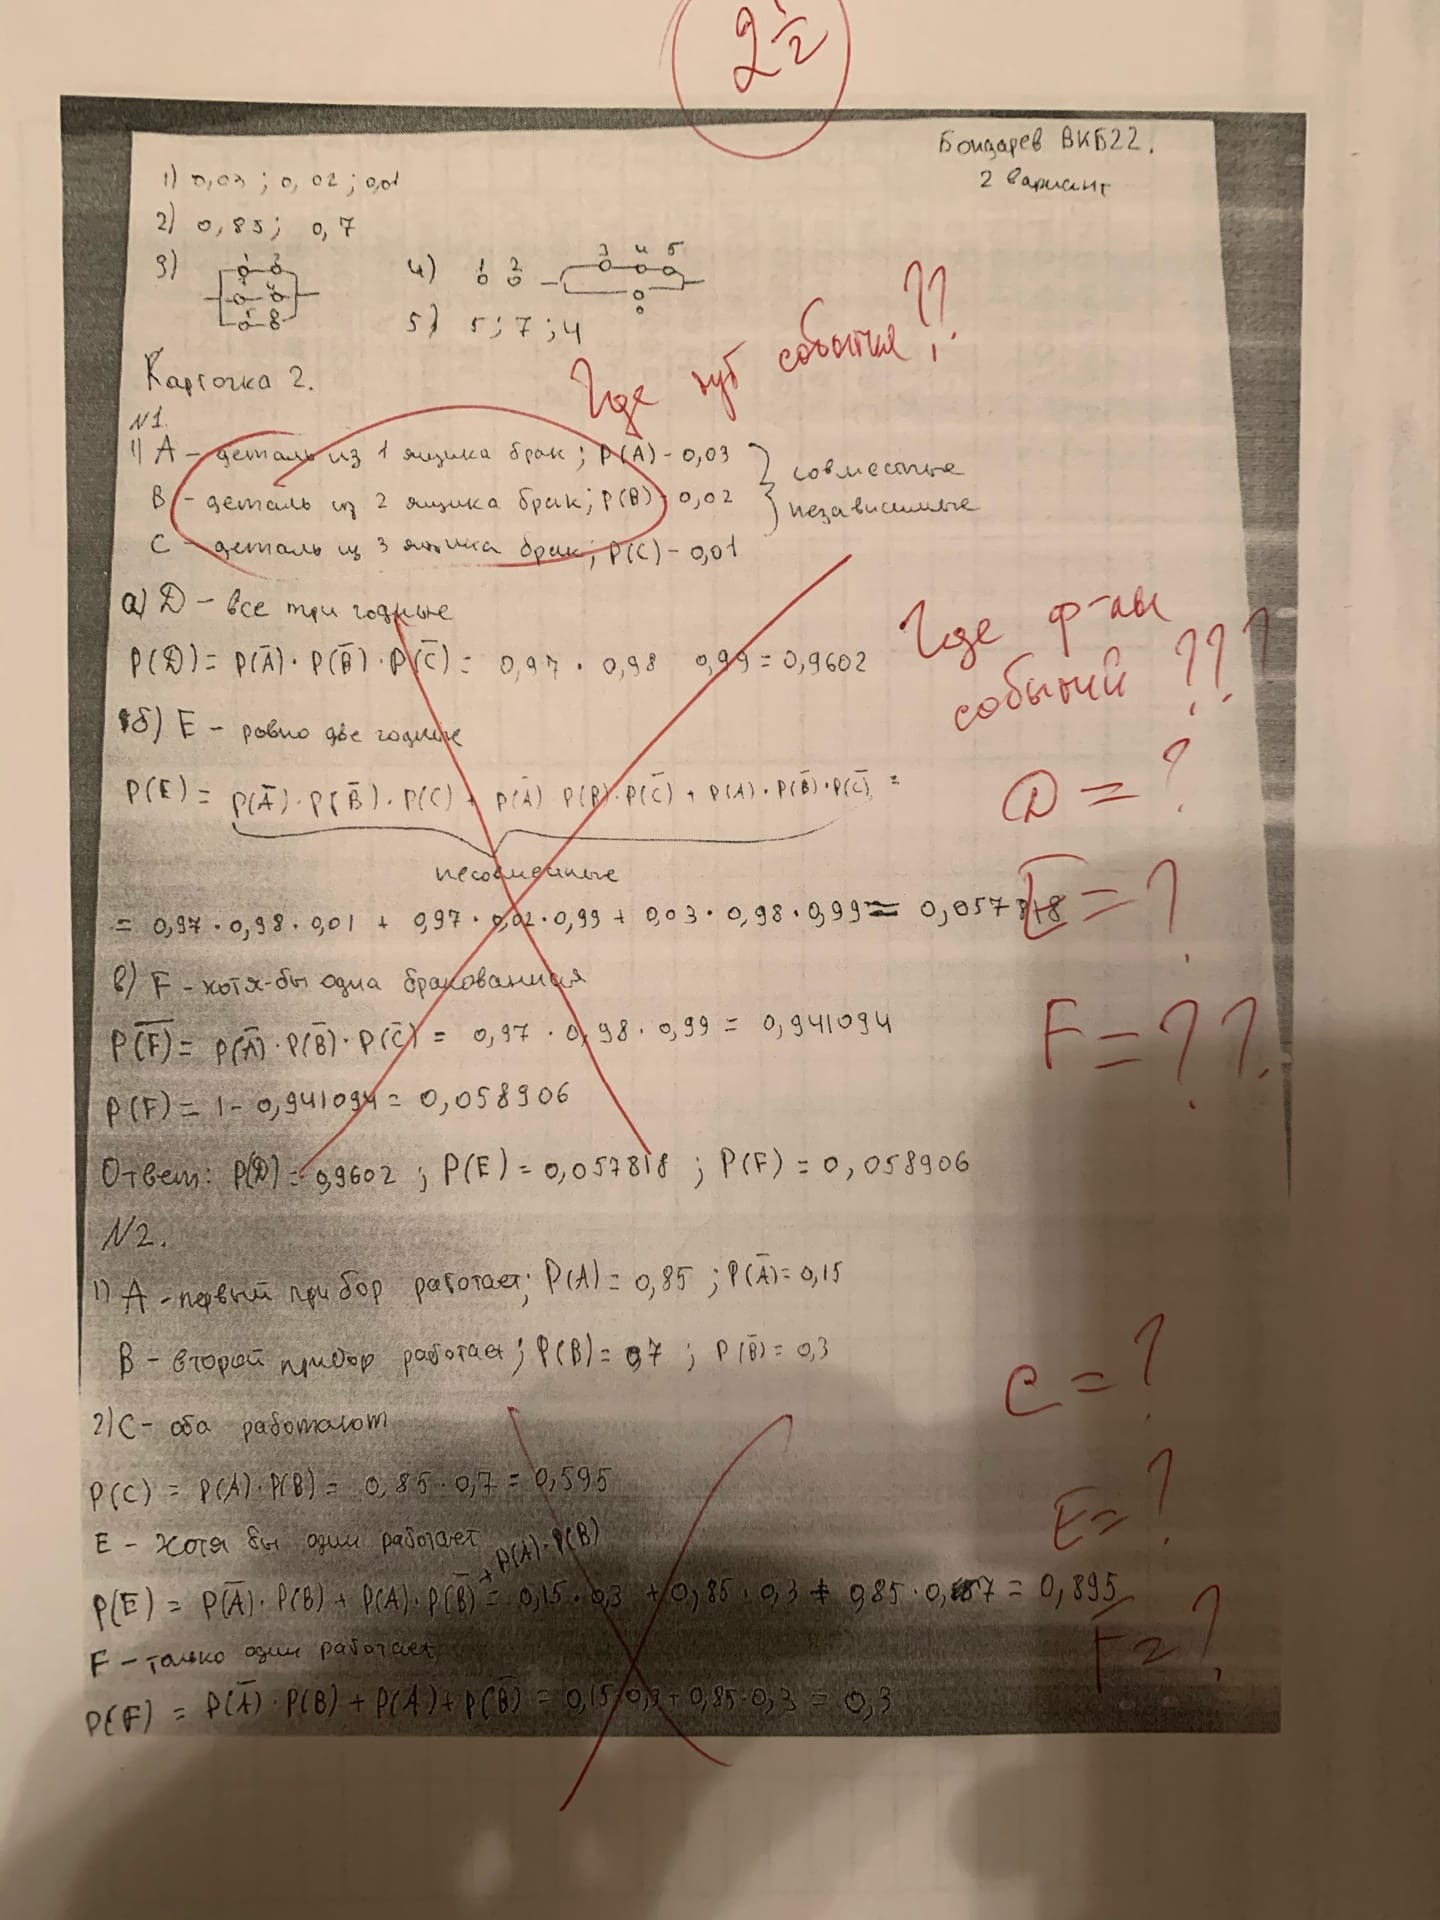 2 1/2
Бондарев ВКБ22.
2 вариант
1) 0,03 ; 0,02 ; 0,01
2) 0,85 ; 0,7
3)
4) 1 2 3 4 5
5) 5 ; 7 ; 4
Где тут события ??
Карточка 2.
N1.
1) A – деталь из 1 ящика брак ; P(A) – 0,03
B – деталь из 2 ящика брак ; P(B) – 0,02
C – деталь из 3 ящика брак ; P(C) – 0,01
совместные
независимые
а) D – все три годные
P(D) = P(Ā) · P(B̄) · P(C̄) = 0,97 · 0,98 0,99 = 0,9602
Где ф-лы
событий ???
б) E – ровно две годные
P(E) = P(Ā) · P(B̄) · P(C) + P(Ā) P(B) · P(C̄) + P(A) · P(B̄) · P(C̄) =
D = ?
несовместные
= 0,97 · 0,98 · 0,01 + 0,97 · 0,02 · 0,99 + 0,03 · 0,98 · 0,99 = 0,057818
E = ?
в) F – хотя-бы одна бракованная
P(F̄) = P(Ā) · P(B̄) · P(C̄) = 0,97 · 0,98 · 0,99 = 0,941094
F = ??.
P(F) = 1 – 0,941094 = 0,058906
Ответ: P(D) = 0,9602 ; P(E) = 0,057818 ; P(F) = 0,058906
N2.
1) A – первый прибор работает ; P(A) = 0,85 ; P(Ā) = 0,15
B – второй прибор работает ; P(B) = 0,7 ; P(B̄) = 0,3
C = ?
2) C – оба работают
P(C) = P(A) · P(B) = 0,85 · 0,7 = 0,595
E – хотя бы один работает
E = ?
+ P(A) · P(B)
P(E) = P(Ā) · P(B) + P(A) · P(B̄) = 0,15 · 0,3 + 0,85 · 0,3 + 0,85 · 0,7 = 0,895
F – только один работает
F = ?
P(F) = P(Ā) · P(B) + P(A) + P(B̄) = 0,15 · 0,3 + 0,85 · 0,3 = 0,3